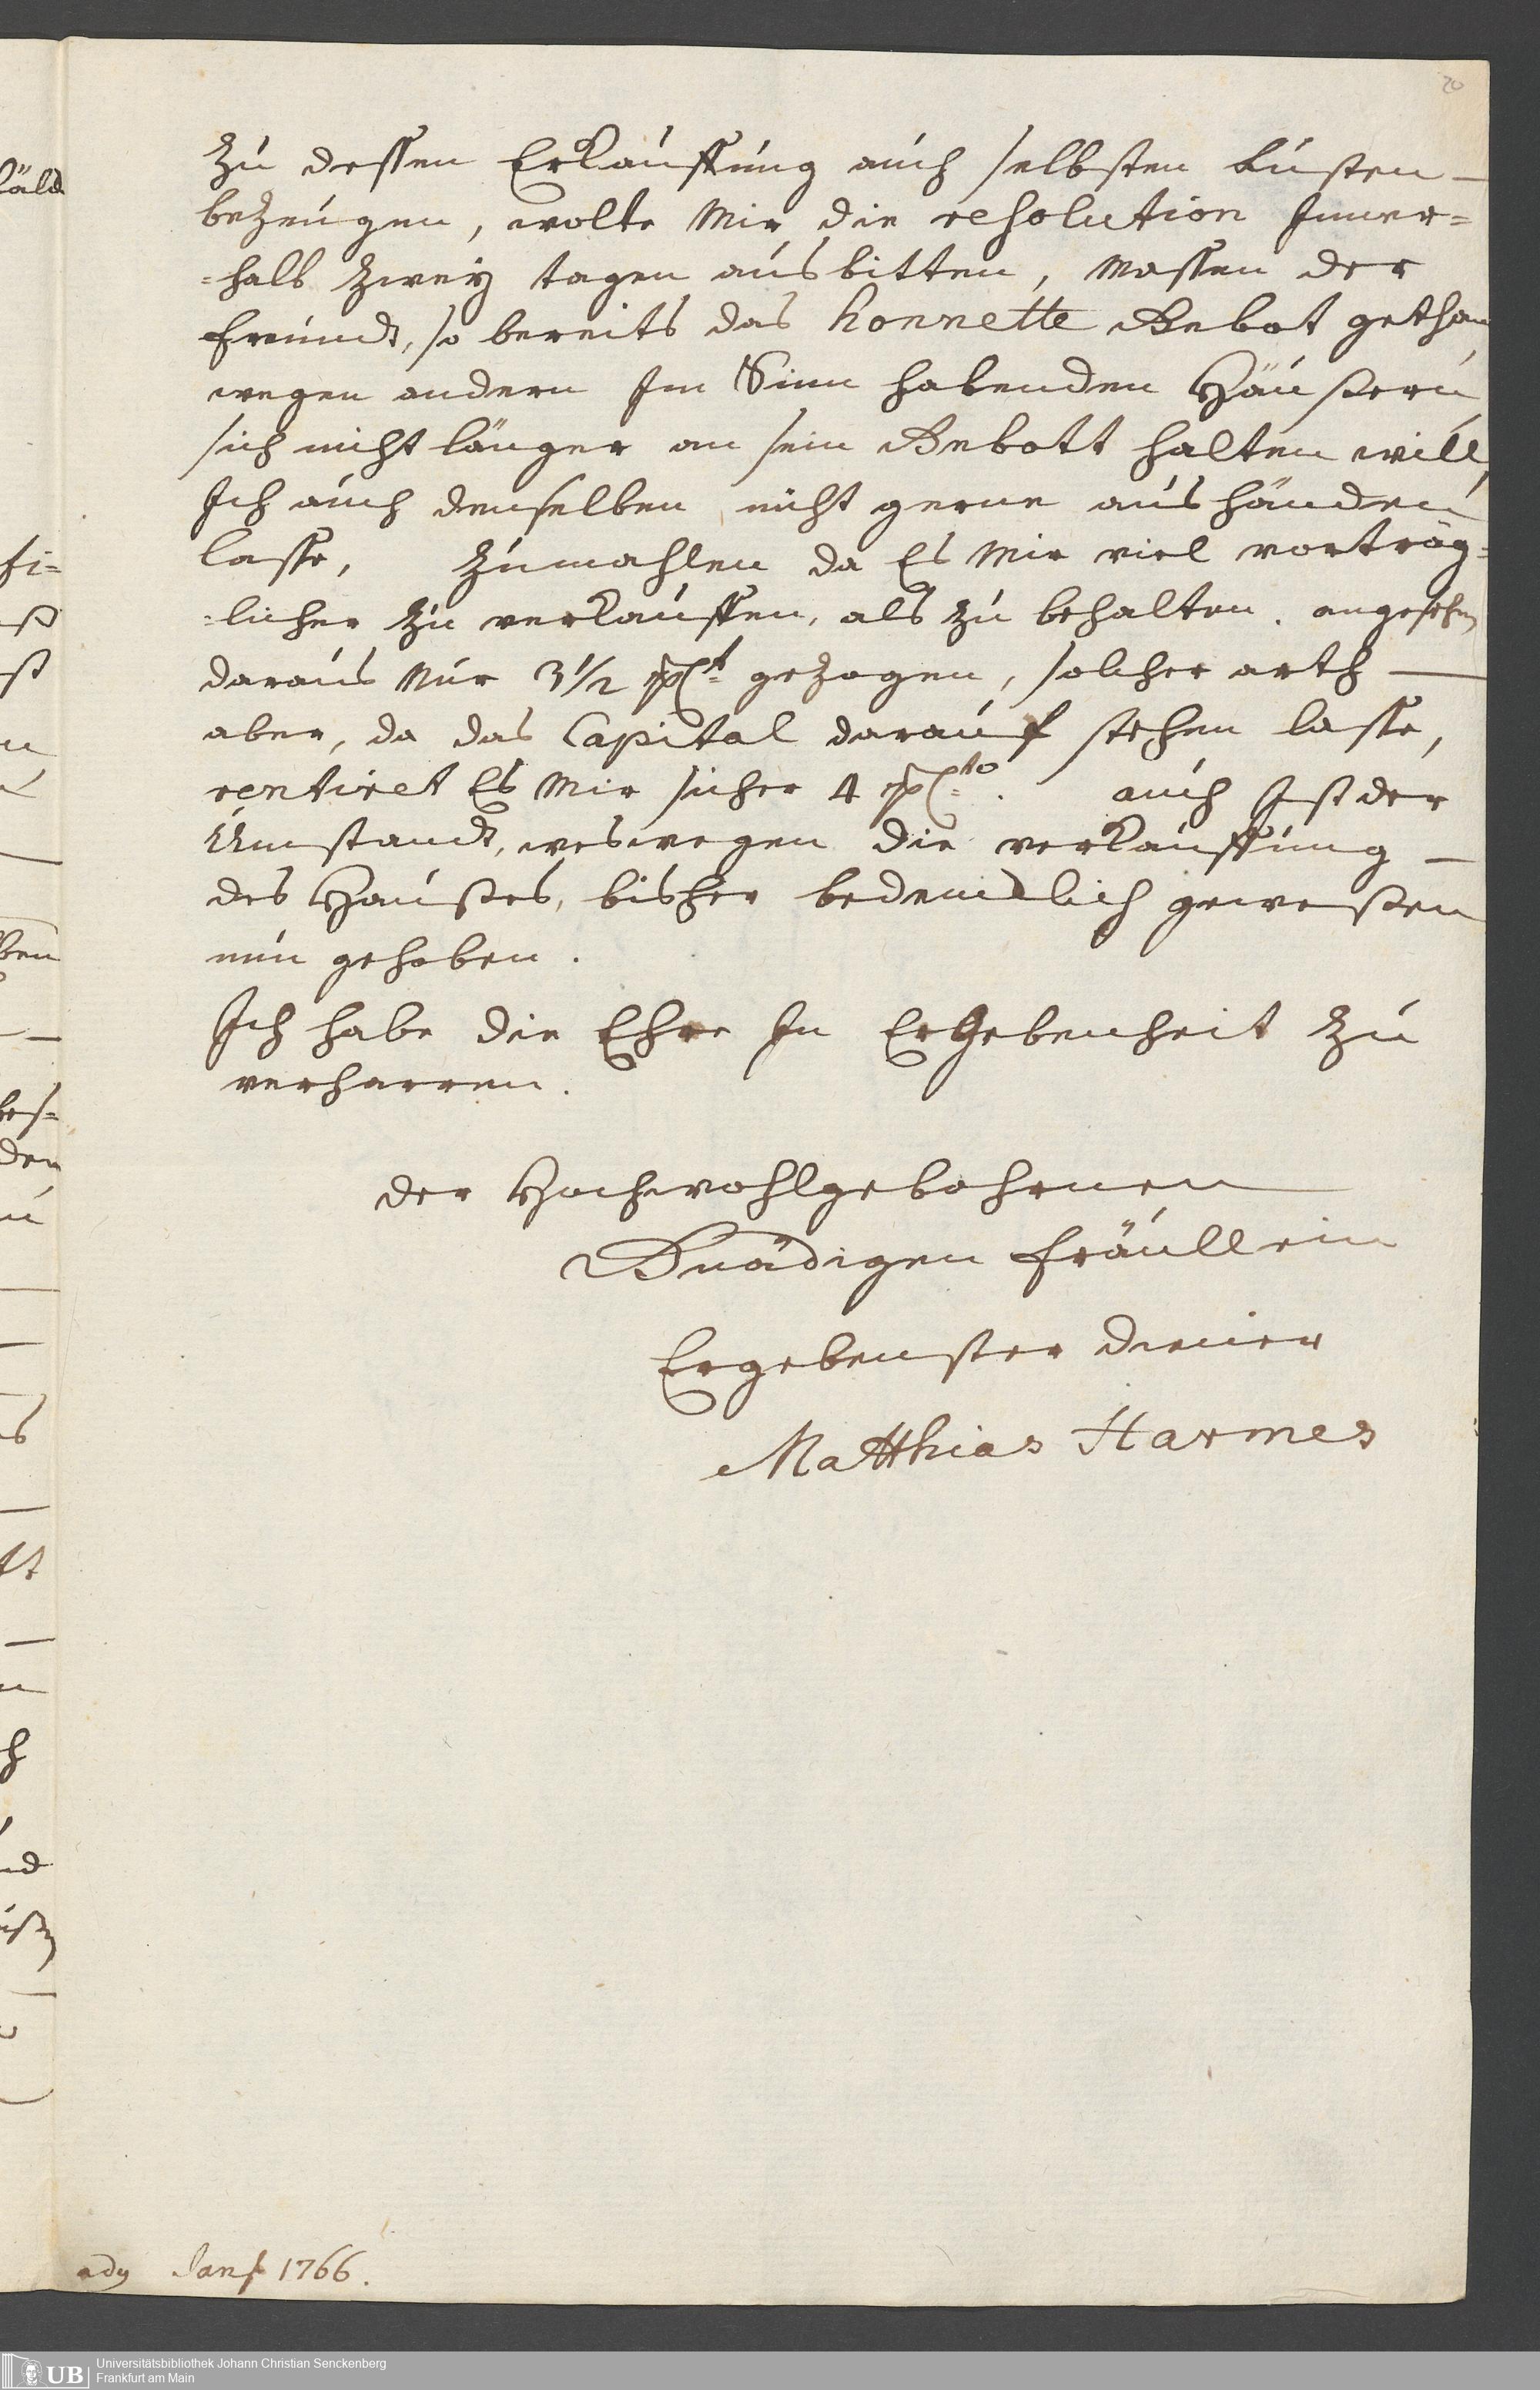 20
zu dessen Erkauffung auch selbsten Lusten
bezeugen, wolte Mir die resolution Inner=
=halb zwey tagen ausbitten, Massen der
freundt, so bereits das honnette Anbot gethan
wegen andern Im Sinn habenden Häussern
sich nicht länger an sein Anbott halten will,
Ich auch denselben nicht gerne aus händen
lasse, Zumahlen da Es Mir viel vorträg=
=licher zu verkauffen, als zu behalten. angesehen
daraus Nur 3 1/2 pCt gezogen, solcher arth
aber, da das Capital darauf stehen lasse,
rentiret Es Mir sicher 4 pCto. auch Ist der
Umstandt, weswegen die verkauffung
des Hausses, bisher bedencklich gewessen
nun gehoben.
Ich habe die Ehre In Ergebenheit zu
verharren.
der Hochwohlgebohrnen
Gnädigen fräullein
Ergebenster diener
Matthias Harmes
ady Janr 1766.
Universitätsbibliothek Johann Christian Senckenberg
Frankfurt am Main
UB